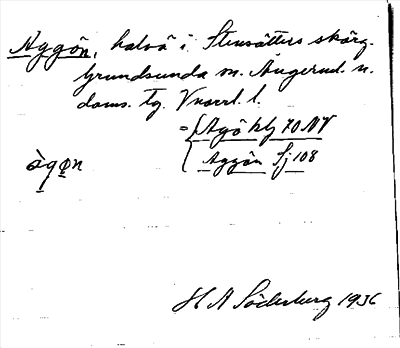 Aggön, halvö i Stensätters skärg.
Grundsunda sn. Ångerml. n.
doms. tg. Vnorrl. l.
= { Agö hly 70 NV
{ Aggön Sj 108
àgøn
H A Söderberg 1936